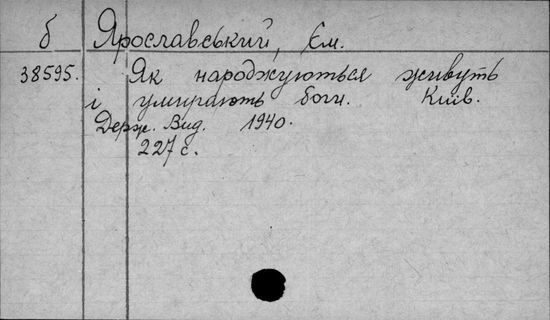 б Ярославський, Єм.
38595. Як народжуються живуть
і умирають боги. Київ.
Держ. Вид. 1940.
227 с.